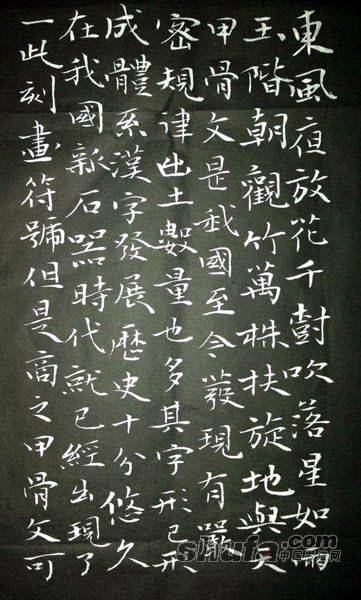 東風夜放花千樹吹落星如雨
玉階朝觀竹萬株扶旋地與天
甲骨文是我國至今發現有嚴
密規律出土數量也多其字形已形
成體系漢字發展歷史十分悠久
在我國新石器時代就已經出現了
一此刻畫符號但是商之甲骨文可
shufa.com